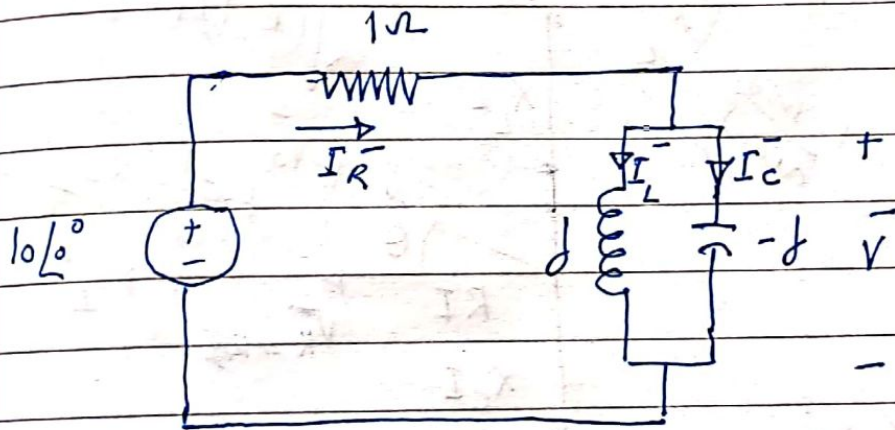 1Ω
I_R⁻
I_L⁻ I_C⁻ +
10∠0° + j -j V⁻
-
-